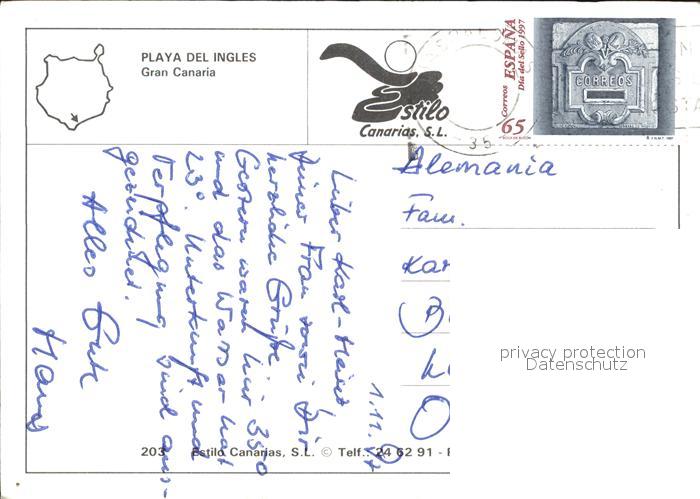 PLAYA DEL INGLES
Gran Canaria
Estilo
Canarias, S.L.
Correos
ESPAÑA
Día del Sello 1997
65
CORREOS
35
Alemania
Fam.
Kar
privacy protection
Datenschutz
1.11.97
Lieber Karl-Heinz
Deiner Frau sowie Dir
herzliche Grüße
Gestern waren hier 35°
und das Wasser hat
23°. Unterkunft und
Verpflegung sind aus-
gezeichnet.
Alles Gute
Hans
203 Estilo Canarias, S.L. © Telf.: 24 62 91 -